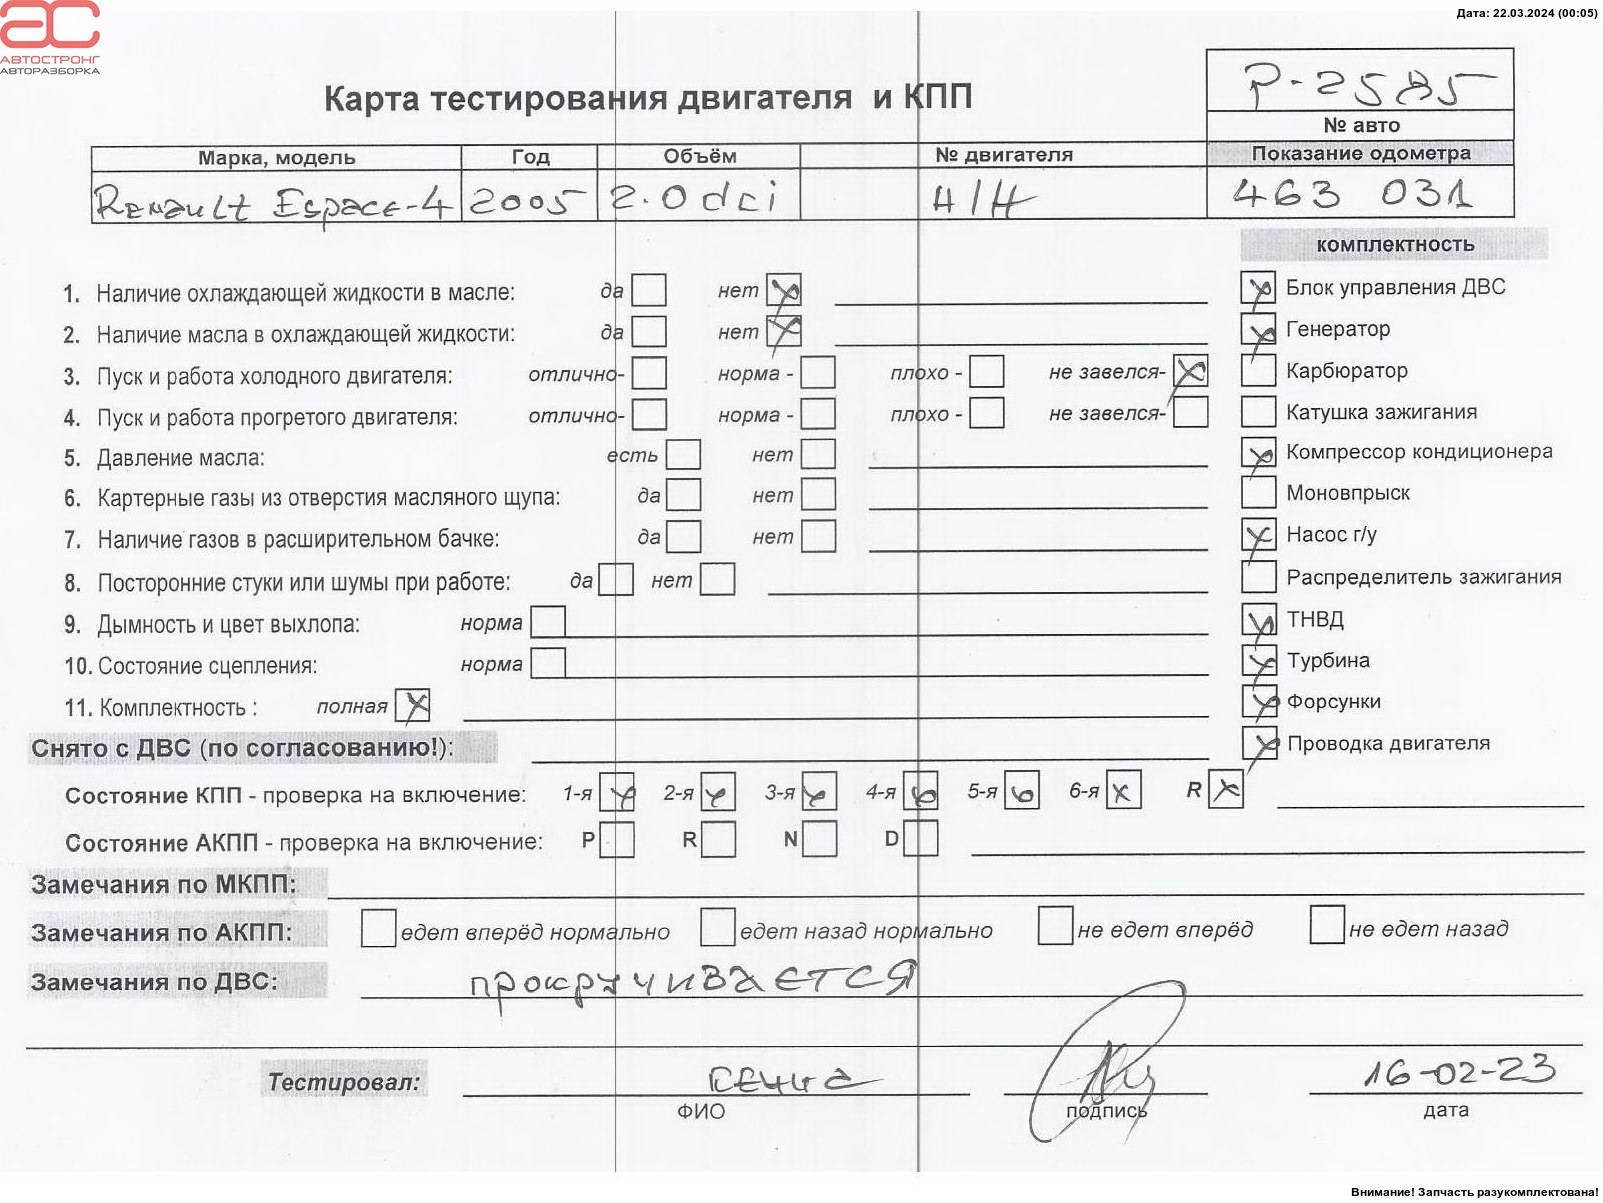 Дата: 22.03.2024 (00:05)
АВТОСТРОНГ
АВТОРАЗБОРКА
Карта тестирования двигателя и КПП
P-2585
№ авто
Марка, модель Год Объём № двигателя Показание одометра
Renault Espace-4 2005 2.0 dci 463 031
комплектность
1. Наличие охлаждающей жидкости в масле: да нет
Блок управления ДВС
2. Наличие масла в охлаждающей жидкости: да нет
Генератор
3. Пуск и работа холодного двигателя: отлично- норма - плохо - не завелся-
Карбюратор
4. Пуск и работа прогретого двигателя: отлично- норма - плохо - не завелся-
Катушка зажигания
5. Давление масла: есть нет
Компрессор кондиционера
6. Картерные газы из отверстия масляного щупа: да нет
Моновпрыск
7. Наличие газов в расширительном бачке: да нет
Насос г/у
8. Посторонние стуки или шумы при работе: да нет
Распределитель зажигания
9. Дымность и цвет выхлопа: норма
ТНВД
10. Состояние сцепления: норма
Турбина
11. Комплектность : полная
Форсунки
Снято с ДВС (по согласованию!):
Проводка двигателя
Состояние КПП - проверка на включение: 1-я 2-я 3-я 4-я 5-я 6-я R
Состояние АКПП - проверка на включение: P R N D
Замечания по МКПП:
Замечания по АКПП: едет вперёд нормально едет назад нормально не едет вперёд не едет назад
Замечания по ДВС: прокручивается
Тестировал: 16-02-23
ФИО подпись дата
Внимание! Запчасть разукомплектована!